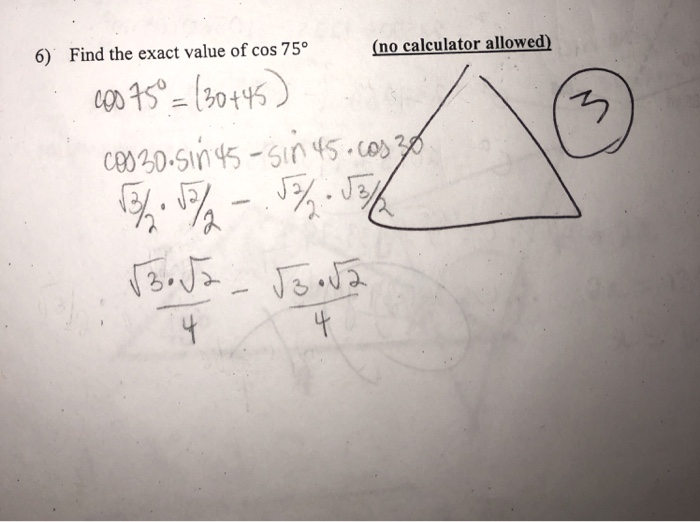 6) Find the exact value of cos 75° (no calculator allowed)
cos 75° = (30+45)
3
cos 30·sin 45 - sin 45·cos 30
√3/2 · √2/2 - √2/2 · √3/2
√3·√2/4 - √3·√2/4